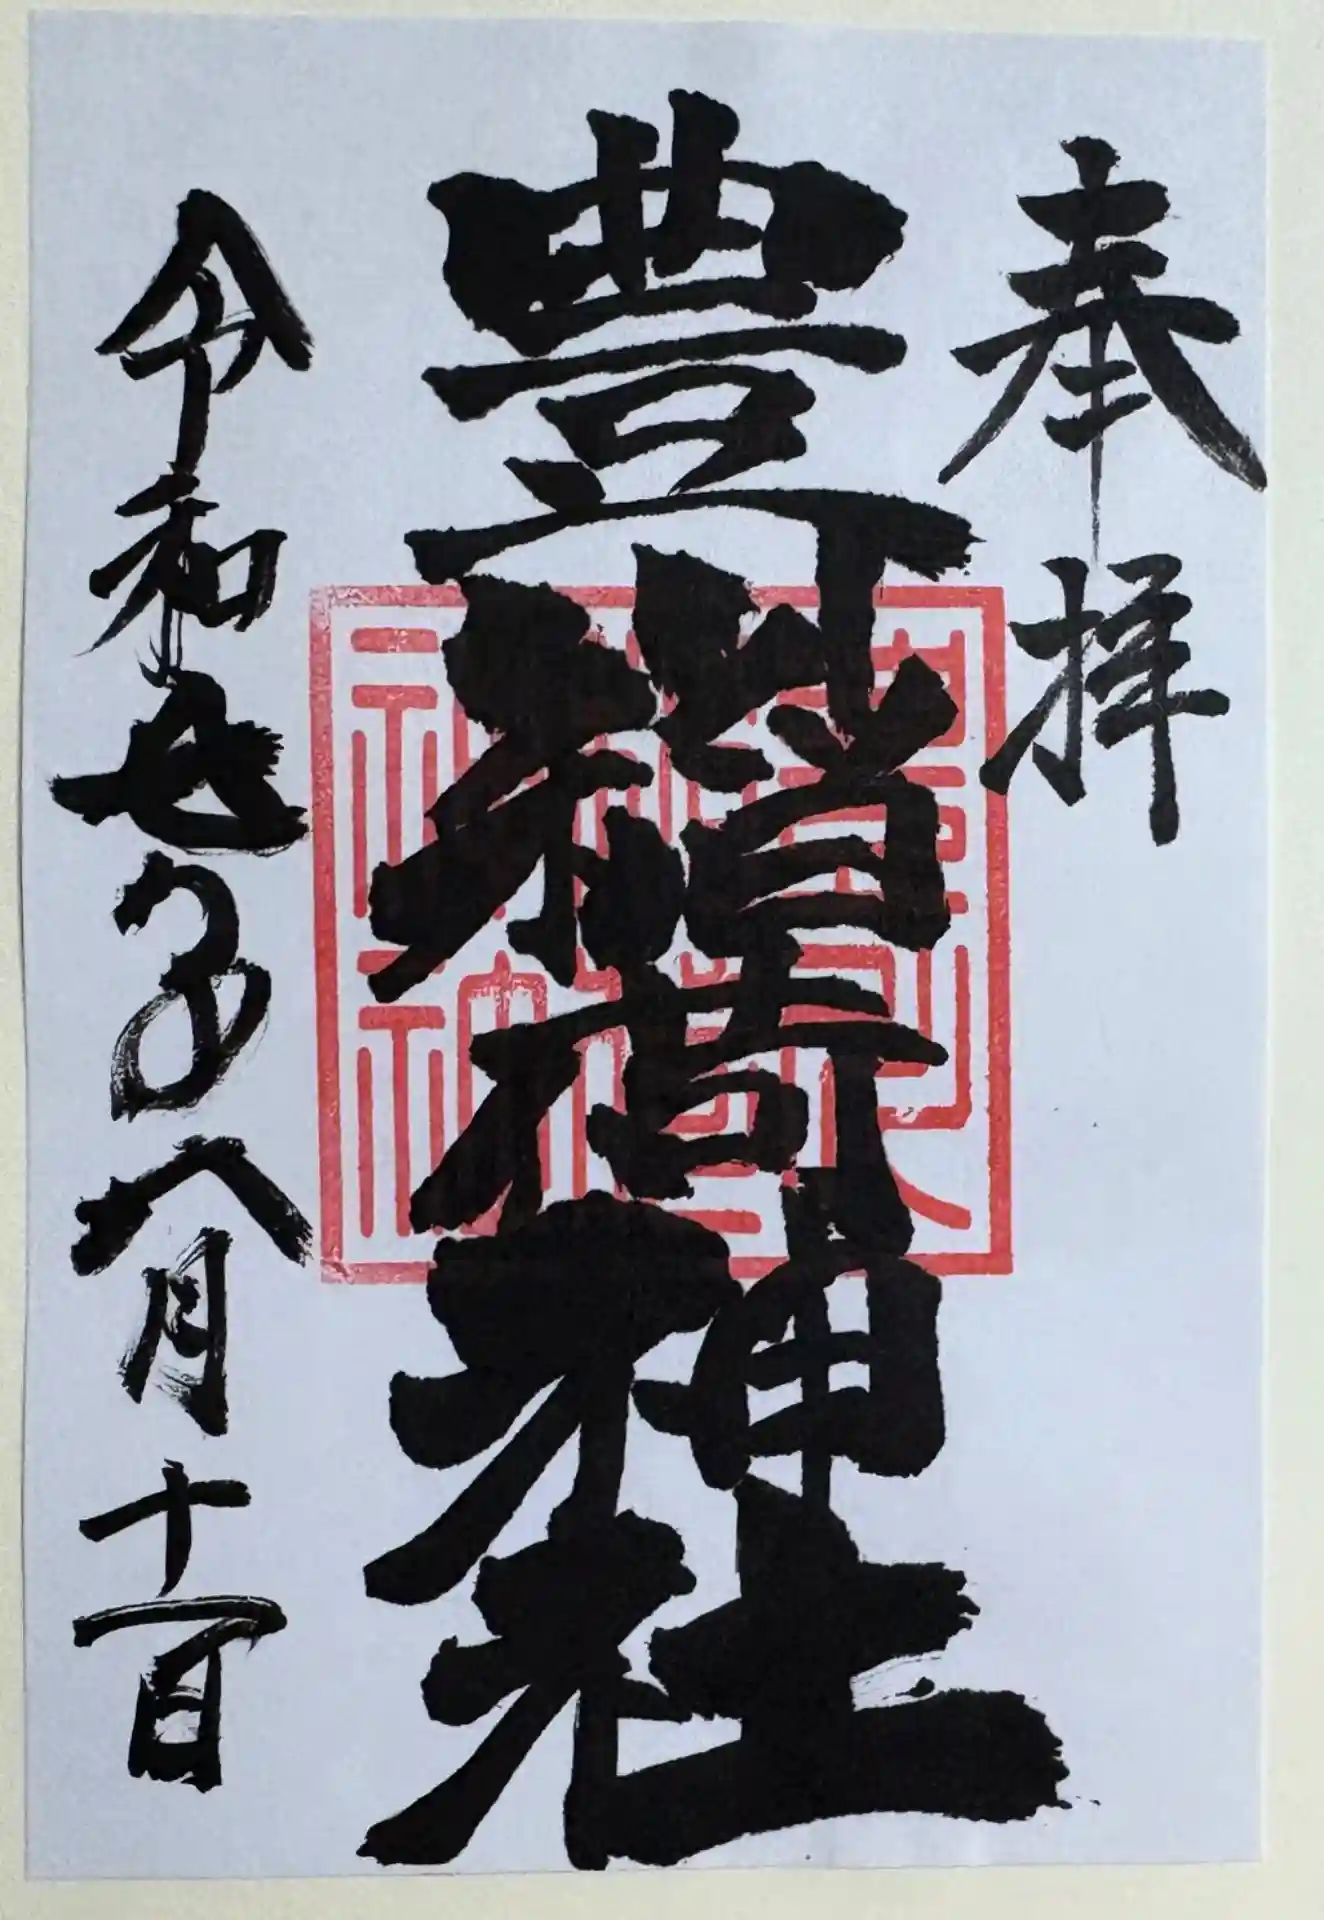 奉拝
豊川稲荷神社
令和七年八月十一日